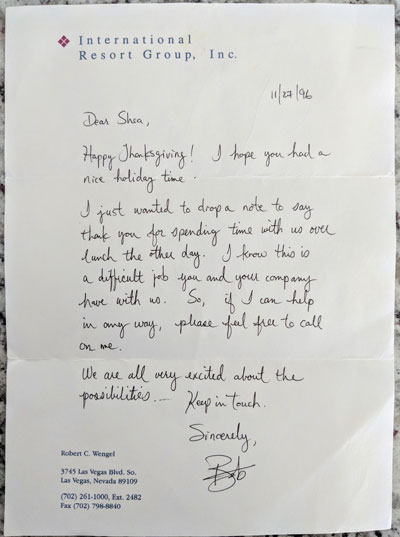 International
Resort Group, Inc.
11/27/96
Dear Shea,
Happy Thanksgiving! I hope you had a
nice holiday time.
I just wanted to drop a note to say
thank you for spending time with us over
lunch the other day. I know this is
a difficult job you and your company
have with us. So, if I can help
in any way, please feel free to call
on me.
We are all very excited about the
possibilities.... Keep in touch.
Sincerely,
Bob
Robert C. Wengel
3745 Las Vegas Blvd. So.
Las Vegas, Nevada 89109
(702) 261-1000, Ext. 2482
Fax (702) 798-8840